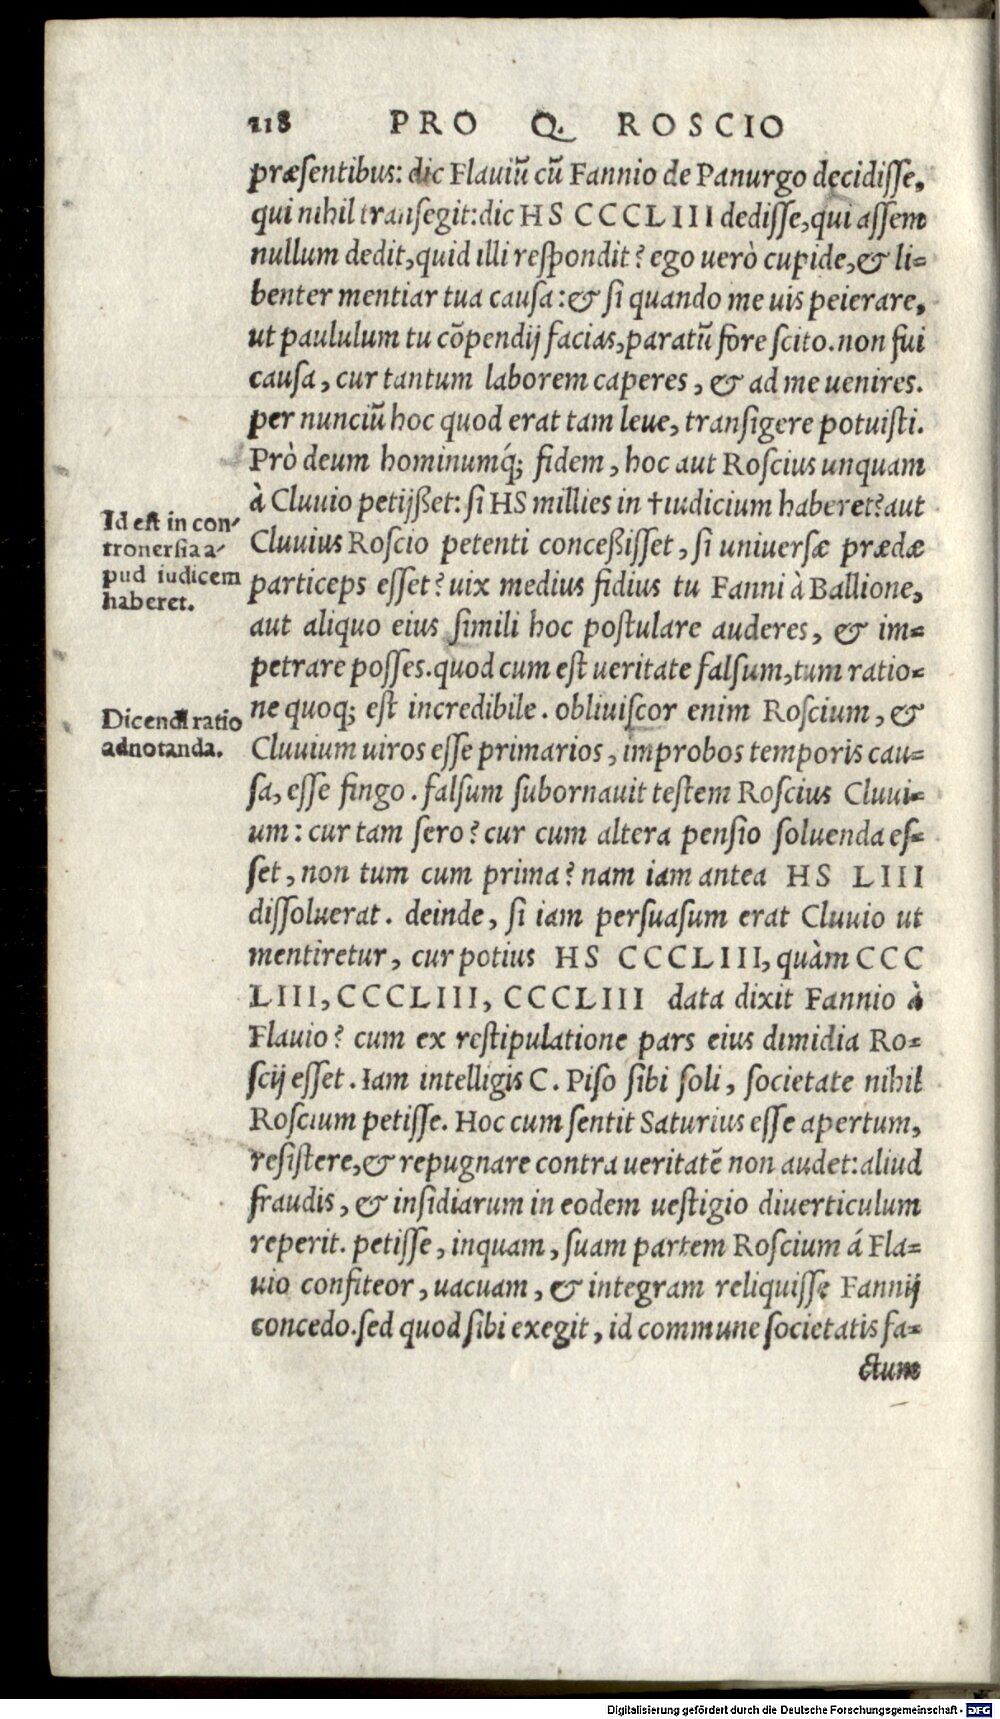 218 PRO Q. ROSCIO
præsentibus: dic Flauiũ cũ Fannio de Panurgo decidisse,
qui nihil transegit: dic HS CCCLIII dedisse, qui assem
nullum dedit, quid illi respondit? ego uerò cupide, & li-
benter mentiar tua causa: & si quando me uis peierare,
ut paululum tu cõpendij facias, paratũ fore scito. non fui
causa, cur tantum laborem caperes, & ad me uenires.
per nunciũ hoc quod erat tam leue, transigere potuisti.
Prò deum hominumq́; fidem, hoc aut Roscius unquam
à Cluuio petijßet: si HS millies in †iudicium haberet? aut
Id est in con-
trouersia a-
pud iudicem
haberet.
Cluuius Roscio petenti conceßisset, si uniuersæ prædæ
particeps esset? uix medius fidius tu Fanni à Ballione,
aut aliquo eius simili hoc postulare auderes, & im-
petrare posses. quod cum est ueritate falsum, tum ratio-
ne quoq; est incredibile. obliuiscor enim Roscium, &
Dicendi ratio
adnotanda.
Cluuium uiros esse primarios, improbos temporis cau-
sa, esse fingo. falsum subornauit testem Roscius Cluui-
um: cur tam sero? cur cum altera pensio soluenda es-
set, non tum cum prima? nam iam antea HS LIII
dissoluerat. deinde, si iam persuasum erat Cluuio ut
mentiretur, cur potius HS CCCLIII, quàm CCC
LIII, CCCLIII, CCCLIII data dixit Fannio à
Flauio? cum ex restipulatione pars eius dimidia Ro-
scij esset. Iam intelligis C. Piso sibi soli, societate nihil
Roscium petisse. Hoc cum sentit Saturius esse apertum,
resistere, & repugnare contra ueritatẽ non audet: aliud
fraudis, & insidiarum in eodem uestigio diuerticulum
reperit. petisse, inquam, suam partem Roscium á Fla-
uio confiteor, uacuam, & integram reliquisse Fannij
concedo. sed quod sibi exegit, id commune societatis fa-
ctum
Digitalisierung gefördert durch die Deutsche Forschungsgemeinschaft - DFG